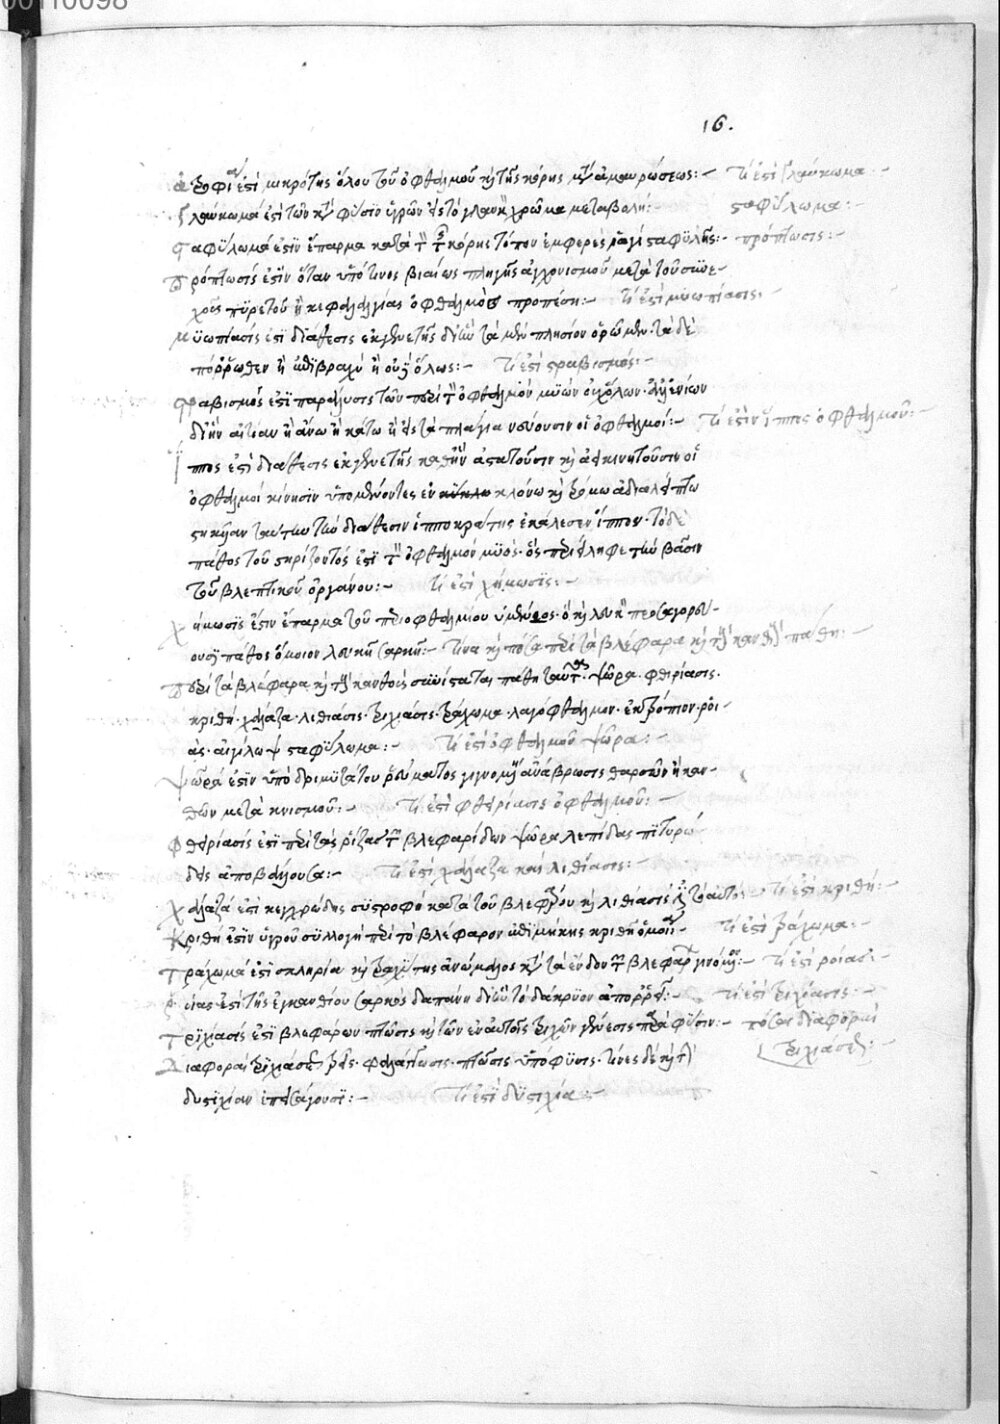 00110098
16.
ἀτροφία ἐστὶ μικρότης ὅλου τοῦ ὀφθαλμοῦ καὶ τῆς κόρης μετ' ἀμαυρώσεως:— τί ἐστι γλαύκωμα:—
Γλαύκωμά ἐστι τῶν κατὰ φύσιν ὑγρῶν εἰς τὸ γλαυκὸν χρῶμα μεταβολή:— σταφύλωμα:—
Σταφύλωμά ἐστιν ἔπαρμα κατὰ τὸν τῆς κόρης τόπον ἐμφερὲς ῥαγὶ σταφυλῆς:— πρόπτωσις:—
Πρόπτωσίς ἐστιν ὅταν ὑπό τινος βιαίως πληγῆς ἀγχονισμοῦ μετὰ τοῦ συνε-
χοῦς πυρετοῦ ἢ κεφαλαλγίας ὁ ὀφθαλμὸς προπέσῃ:— τί ἐστι μυωπίασις.
Μυωπίασίς ἐστι διάθεσις ἐκ γενετῆς δι' ἣν τὰ μὲν πλησίον ὁρῶμεν. τὰ δὲ
πόρρωθεν ἢ ἐπὶ βραχὺ ἢ οὐδ' ὅλως:— τί ἐστι στραβισμός:—
Στραβισμός ἐστι παράλυσις τῶν περὶ τὸν ὀφθαλμὸν μυῶν οὐχ ὅλων. ἀλλ' ἐνίων
δι' ἣν αἰτίαν ἢ ἄνω ἢ κάτω ἢ εἰς τὰ πλάγια νεύουσιν οἱ ὀφθαλμοί:— τί ἐστιν ἵππος ὀφθαλμοῦ:—
Ἵππος ἐστὶ διάθεσις ἐκ γενετῆς καθ' ἣν ἀστατοῦσιν καὶ ἀεικινητοῦσιν οἱ
ὀφθαλμοὶ κίνησιν ὑπομένοντες ἐν κλόνω καὶ τρόμω ἀδιαλείπτω
ταύτην τὴν διάθεσιν ἱπποκράτης ἐκάλεσεν ἵππον. τὸ δὲ
πάθος τοῦ στηρίζοντός ἐστι τὸν ὀφθαλμὸν μυὸς. ὃς περιείληφε τὴν βάσιν
τοῦ βλεπτικοῦ ὀργάνου:— τί ἐστι χήμωσις:—
Χήμωσίς ἐστιν ἔπαρμα τοῦ περιοφθαλμίου ὑμένος. ὃ καὶ λευκὸν προσαγορεύ-
ουσι πάθος ὅμοιον λευκῇ σαρκί:— τίνα καὶ πόσα περὶ τὰ βλέφαρα καὶ τοὺς κανθοὺς πάθη:—
Περὶ τὰ βλέφαρα καὶ τοὺς κανθοὺς συνίσταται πάθη ταῦτα. ψώρα. φθιρίασις.
κριθή. χάλαζα. λιθίασις. τριχίασις. τράχωμα. λαγόφθαλμον. ἐκτρόπιον. ῥοι-
ὰς. αἰγίλωψ σταφύλωμα:— τί ἐστι ὀφθαλμοῦ ψώρα:—
Ψώρά ἐστιν ὑπὸ δριμυτάτου ῥεύματος γινομένη ἀνάβρωσις ταρσῶν ἢ καν-
θῶν μετὰ κνισμοῦ:— τί ἐστι φθειρίασις ὀφθαλμοῦ:—
Φθειρίασίς ἐστι περὶ τὰς ῥίζας τῶν βλεφαρίδων ψώρα λεπίδας πιτυρώ-
δεις ἀποβάλλουσα:— τί ἐστι χάλαζα καὶ λιθίασις:—
Χάλαζά ἐστι κεγχρώδης συστροφὴ κατὰ τοῦ βλεφάρου καὶ λιθίασις τί ἐστι κριθή:—
Κριθή ἐστιν ὑγροῦ συλλογὴ περὶ τὸ βλέφαρον ἐπιμήκης κριθῇ ὁμοία:— τί ἐστι τράχωμα:—
Τράχωμά ἐστι σκληρία καὶ τραχύτης ἀνώμαλος κατὰ τὰ ἔνδον τῶν βλεφάρων γινομένη:— τί ἐστι ῥοιάς:—
Ῥυίας ἐστὶ τῆς ἐγκανθίου σαρκὸς δαπάνη δι' ἣν τὸ δάκρυον ἀπορρεῖ:— τί ἐστι τριχίασις:—
Τριχίασίς ἐστι βλεφάρων πτῶσις καὶ τῶν ἐν αὐτοῖς τριχῶν γένεσις παρὰ φύσιν:— πόσαι διαφοραὶ
τριχιάσεως:—
Διαφοραὶ τριχιάσεως τρεῖς. φαλάγγωσις. πτῶσις ὑπόφυσις. τινὲς δὲ καὶ τὴν
δυστιχίαν ἐπεισάγουσι:— τί ἐστι δυστιχία:—